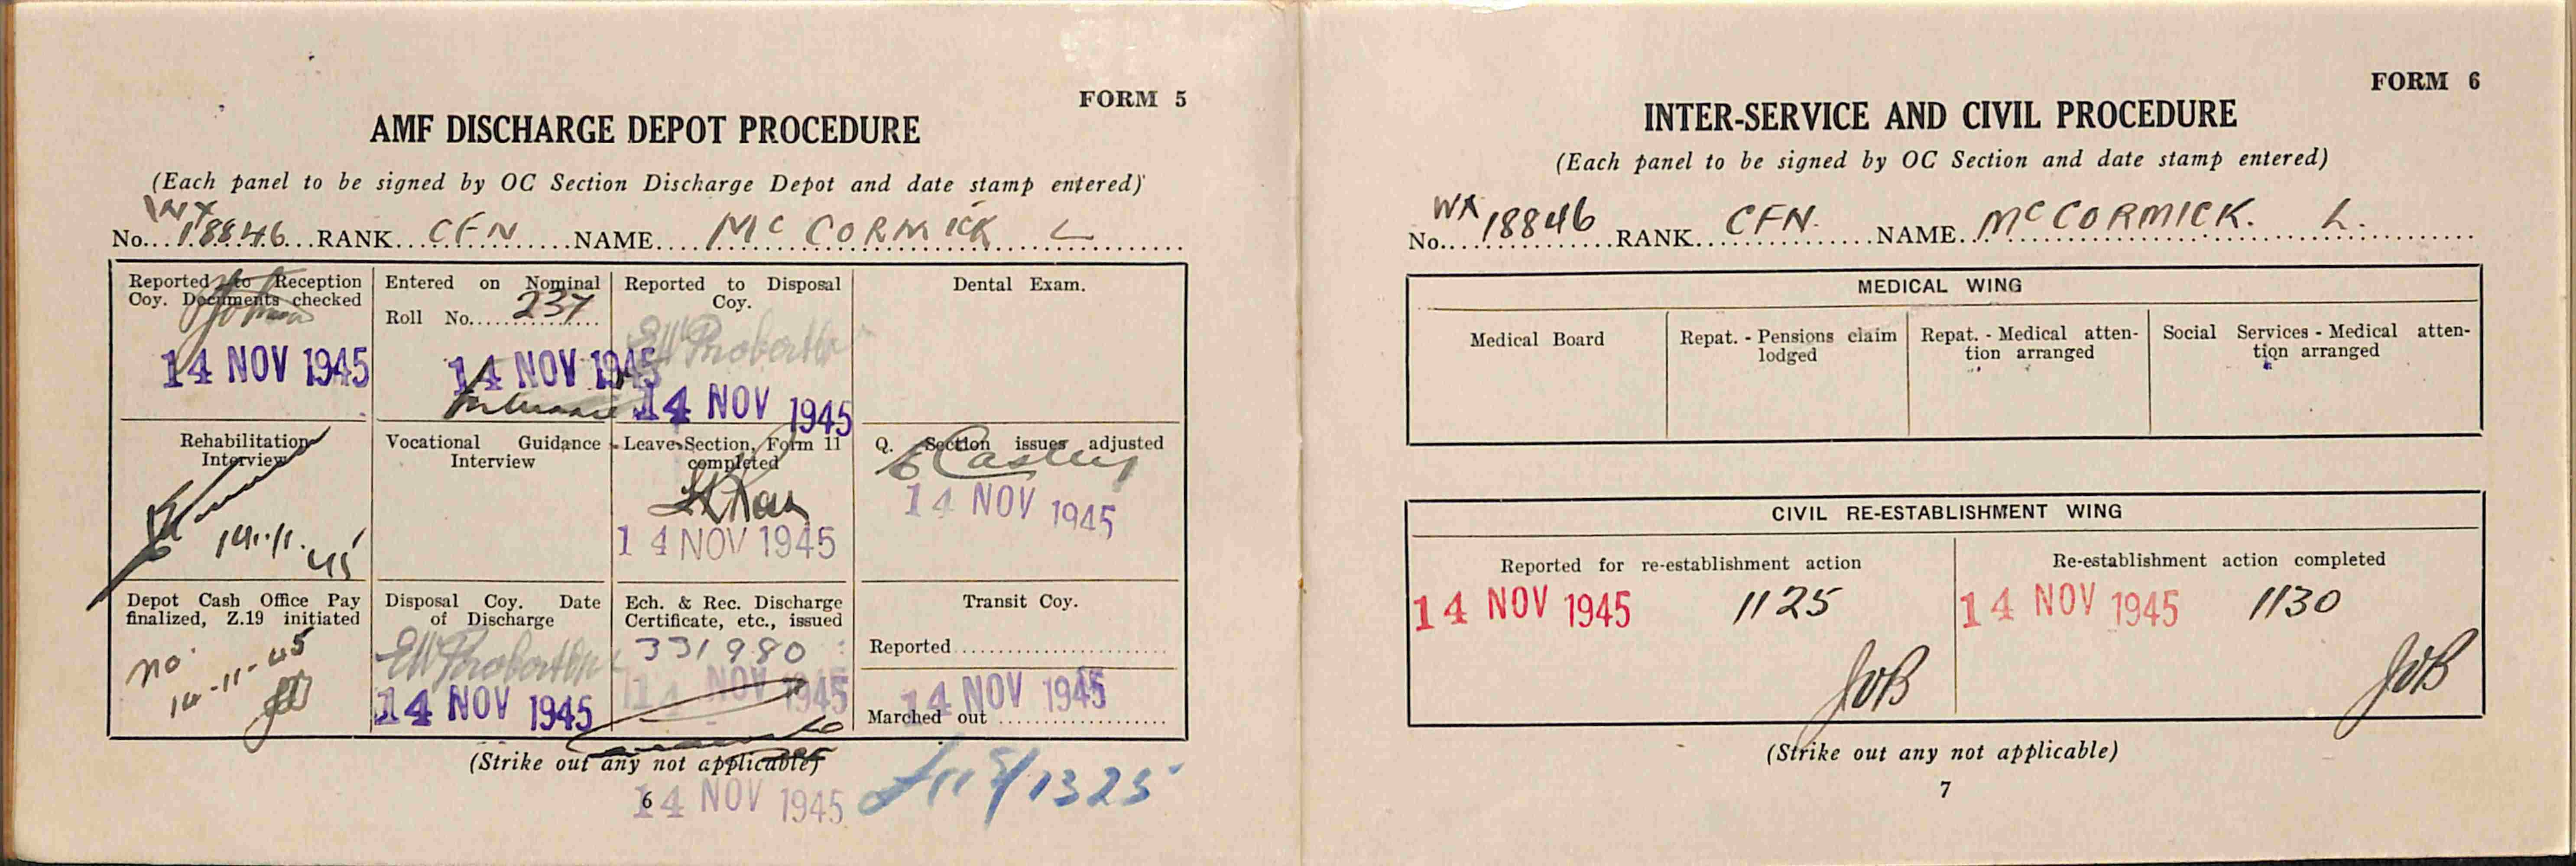 FORM 5
AMF DISCHARGE DEPOT PROCEDURE
(Each panel to be signed by OC Section Discharge Depot and date stamp entered)
No. WX 18846 RANK CFN NAME McCORMICK L
Reported to Reception
Coy. Documents checked
14 NOV 1945
Entered on Nominal
Roll No. 237
14 NOV 1945
Reported to Disposal
Coy.
14 NOV 1945
Dental Exam.
Rehabilitation
Interview
14.11.45
Vocational Guidance
Interview
Leave Section, Form 11
completed
14 NOV 1945
Q. Section issues adjusted
14 NOV 1945
Depot Cash Office Pay
finalized, Z.19 initiated
no.
14-11-45
Disposal Coy. Date
of Discharge
14 NOV 1945
Ech. & Rec. Discharge
Certificate, etc., issued
331980
14 NOV 1945
Transit Coy.
Reported
14 NOV 1945
Marched out
(Strike out any not applicable)
6
14 NOV 1945
1325
FORM 6
INTER-SERVICE AND CIVIL PROCEDURE
(Each panel to be signed by OC Section and date stamp entered)
No. WX 18846 RANK CFN. NAME McCORMICK. L.
MEDICAL WING
Medical Board
Repat. - Pensions claim
lodged
Repat. - Medical atten-
tion arranged
Social Services - Medical atten-
tion arranged
CIVIL RE-ESTABLISHMENT WING
Reported for re-establishment action
14 NOV 1945 1125
JOB
Re-establishment action completed
14 NOV 1945 1130
JOB
(Strike out any not applicable)
7